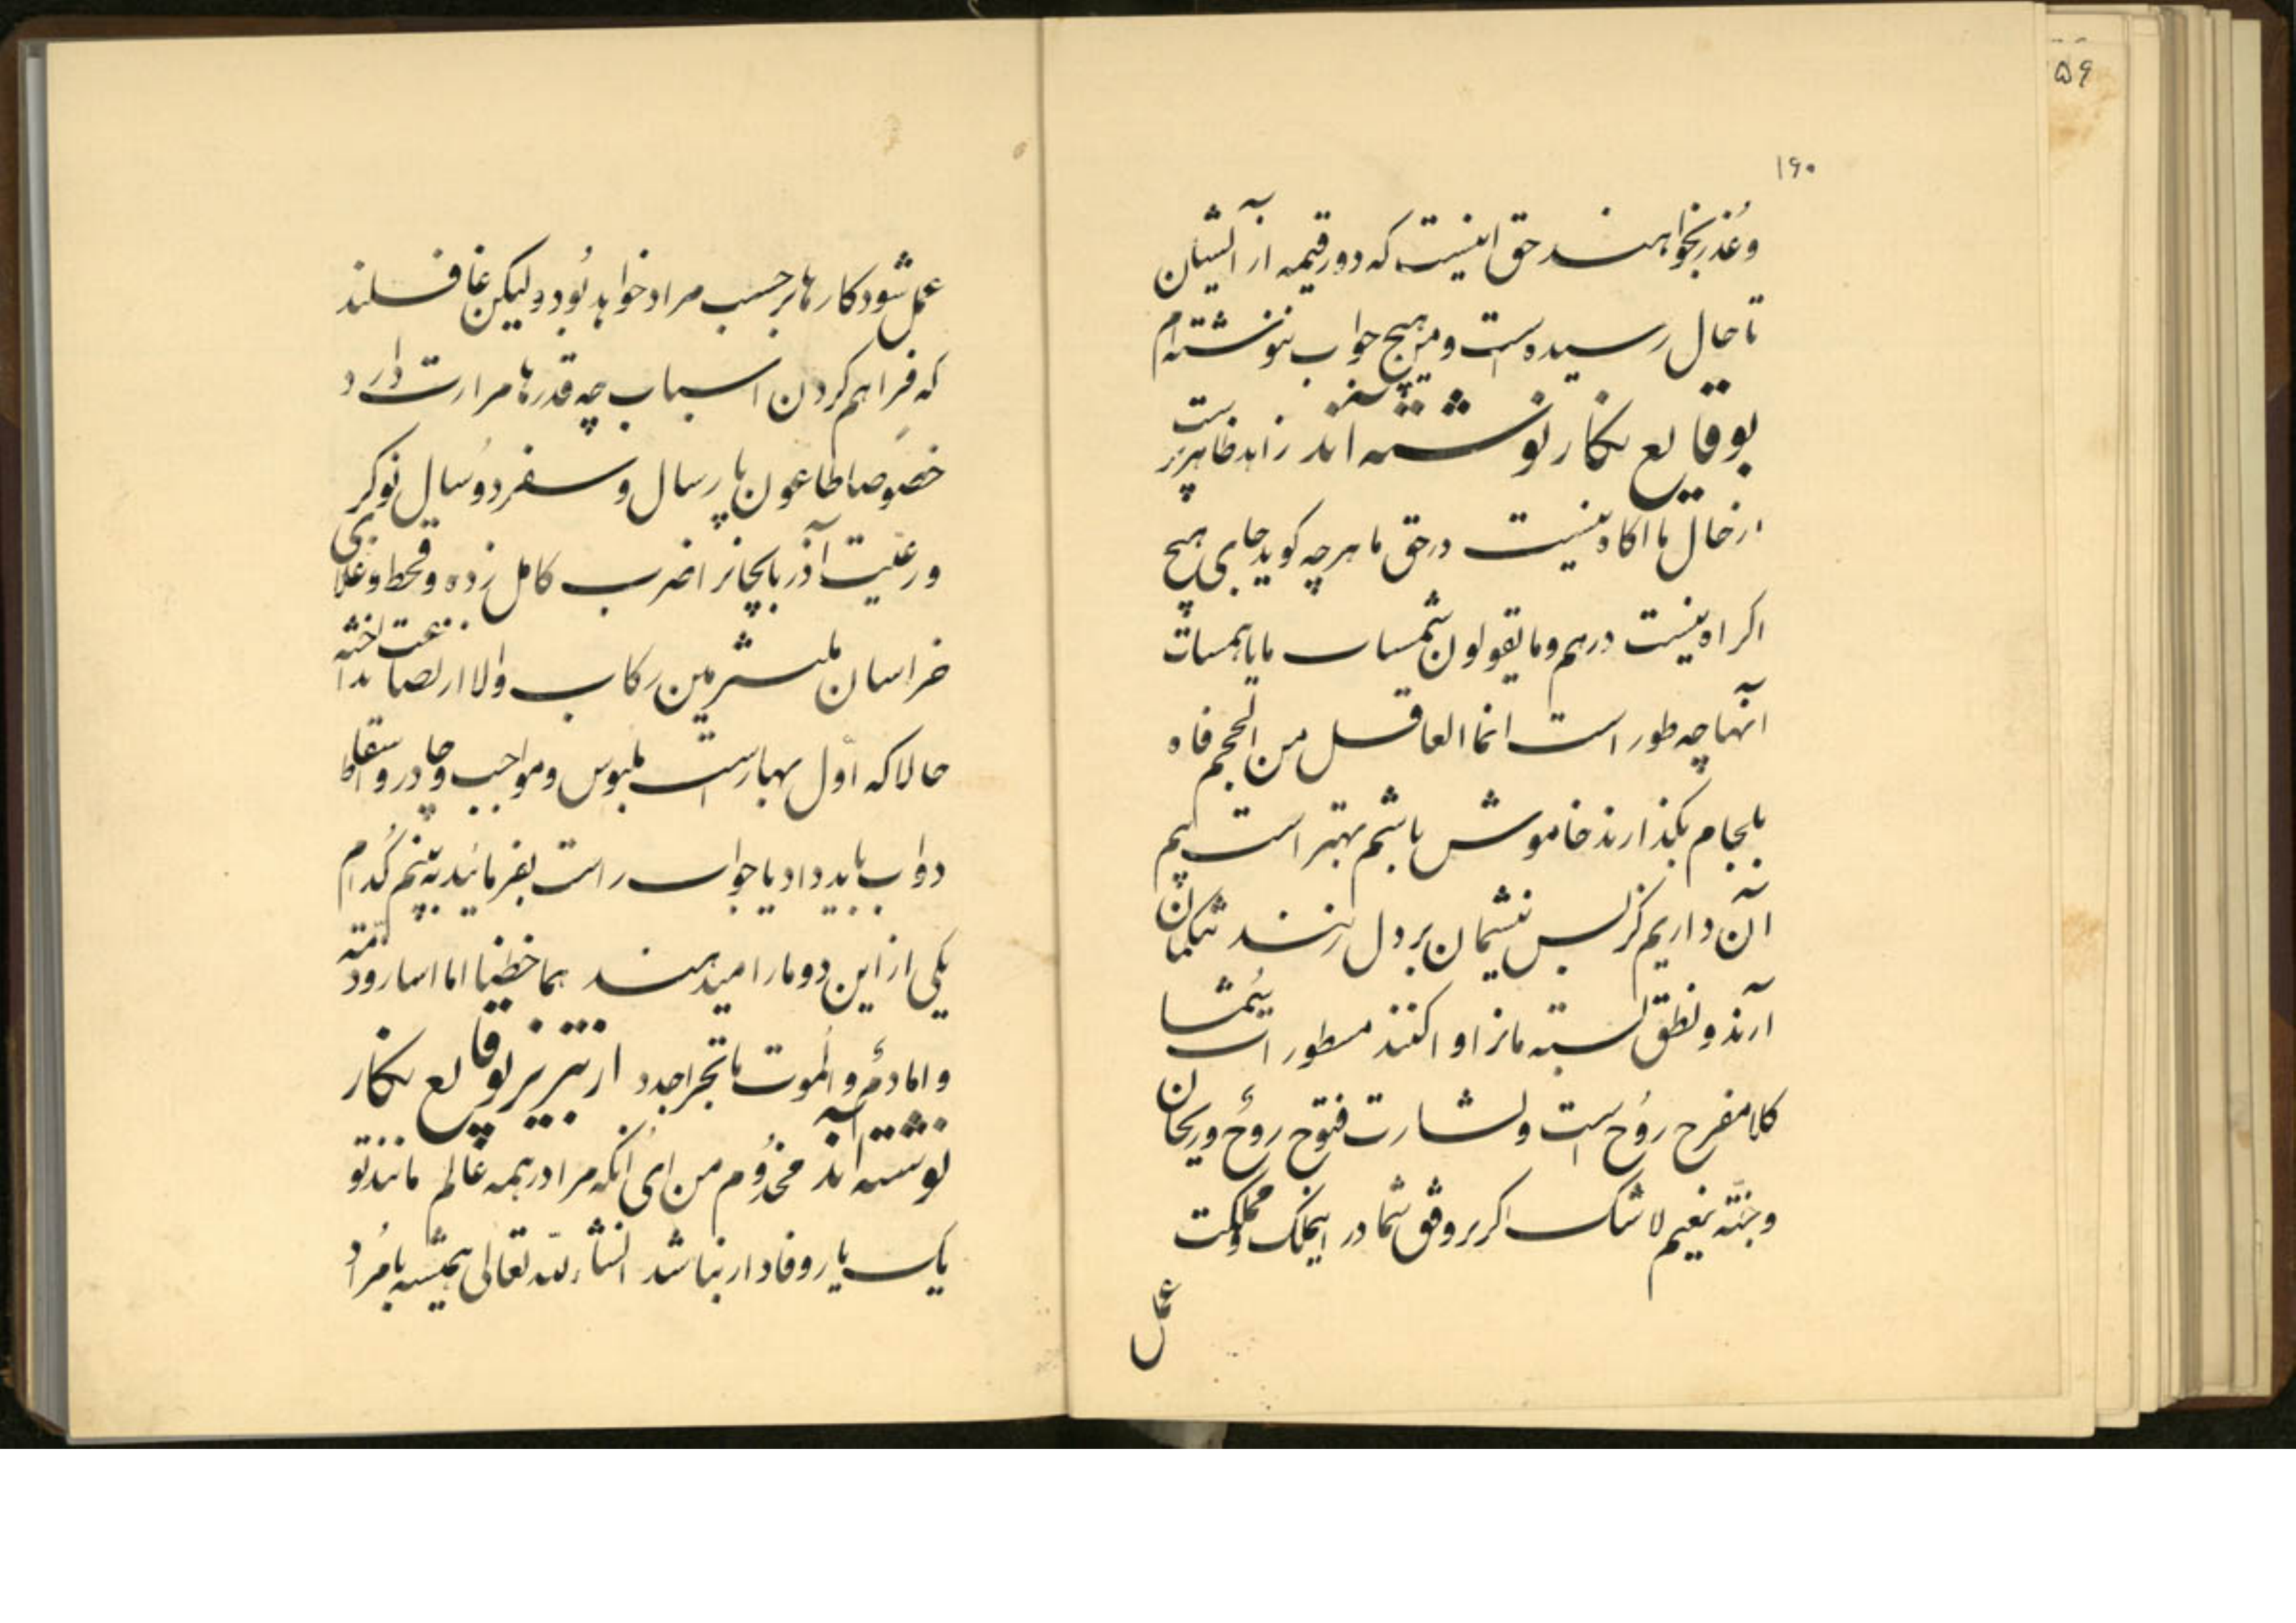 ۵۶
۱۶۰
و عذر بخواهند حق اینست که دو رقیمه از ایشان
تا حال رسیده است و من هیچ جواب ننوشته‌ام
بوقایع نکار نوشته اند زاهد ظاهر پرست
از حال ما اکاه نیست در حق ما هر چه کوید جای هیچ
اکراه نیست درهم و ما یقولون شمسات ما با همسات
آنها چه طور است انما العاقل من الجم فاه
بلجام بکذارند خاموش باشم بهتر است کیم
آن داریم کز لبس نشیمان بر دل زنند شکیبان
آرند و نطق بسته مانرا وا کنند مسطورات شما
کلا مفرح روح است و بشارت فتوح روح و ریحان
و جنّة نعیم لا شک اکر بر وفق شما در اینملک و مملکت
عمل
عمل شود کارها بر حسب مراد خواهد بود و لیکن غافلند
که فراهم کردن اسباب چه قدرها مرارت دارد
خصوصا طاعون پارسال و سفر دو سال نوکر
و رعیت آذربایجانرا ضرب کامل زده و قحط و غلای
خراسان ملتزمین رکاب والا را بصاعت انداخته
حالا که اول بهار است ملبوس و مواجب و چادر و سقط
دواب باید داد یا جواب راست بفرمائید به بینم کدام
یکی از این دو ما را میدهند هما خطتا اما اسار و منّة
و اما دمٌ و الموت بالحر اجدد از تبریز بوقایع نکار
نوشته اند مخدوم من ای آنکه مرا در همه عالم مانند تو
یک یار وفادار نباشد انشاءالله تعالی همیشه بامراد